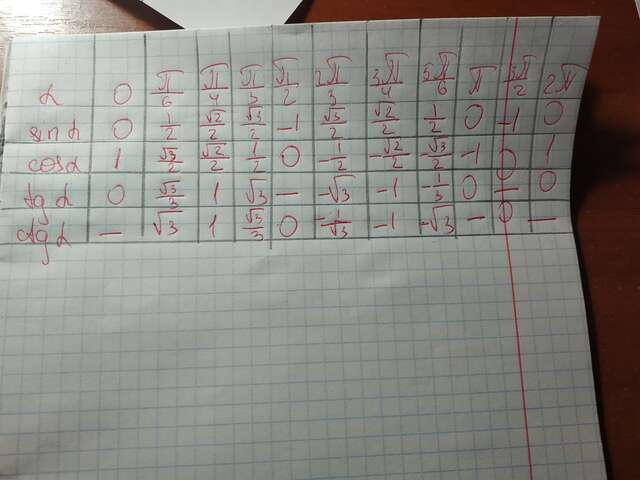 α 0 π/6 π/4 π/3 π/2 2π/3 3π/4 5π/6 π 3π/2 2π
sin α 0 1/2 √2/2 √3/2 -1 √3/2 √2/2 1/2 0 -1 0
cos α 1 √3/2 √2/2 1/2 0 -1/2 -√2/2 -√3/2 -1 0 1
tg α 0 √3/3 1 √3 — -√3 -1 -1/3 0 — 0
ctg α — √3 1 √3/3 0 -1/√3 -1 -√3 — 0 —